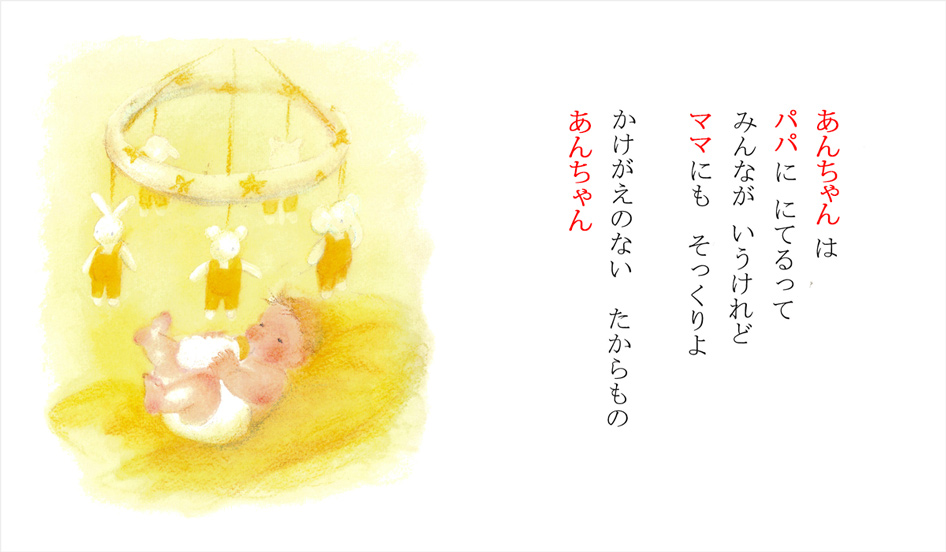 あんちゃん は
パパ に にてるって
みんなが いうけれど
ママにも そっくりよ
かけがえのない たからもの
あんちゃん